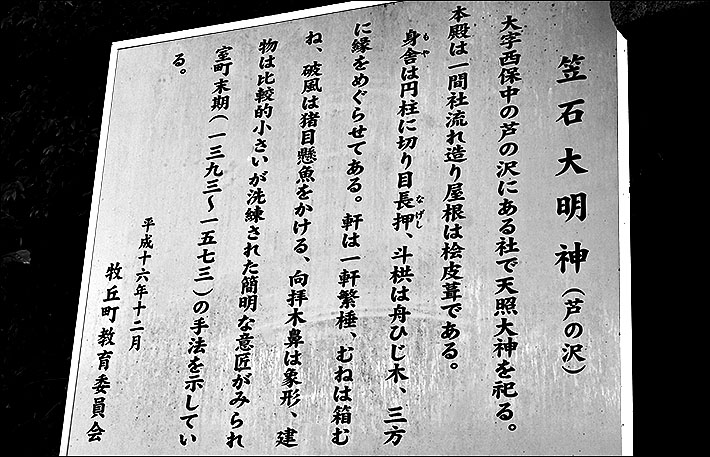 笠石大明神（芦の沢）
大字西保中の芦の沢にある社で天照大神を祀る。
本殿は一間社流れ造り屋根は桧皮葺である。
身舎は円柱に切り目長押、斗栱は舟ひじ木、三方
もや
なげし
に縁をめぐらせてある。軒は一軒繁棰、むねは箱む
ね、破風は猪目懸魚をかける、向拝木鼻は象形、建
物は比較的小さいが洗練された簡明な意匠がみられ
室町末期（一三九三～一五七三）の手法を示してい
る。
平成十六年十二月
牧丘町教育委員会